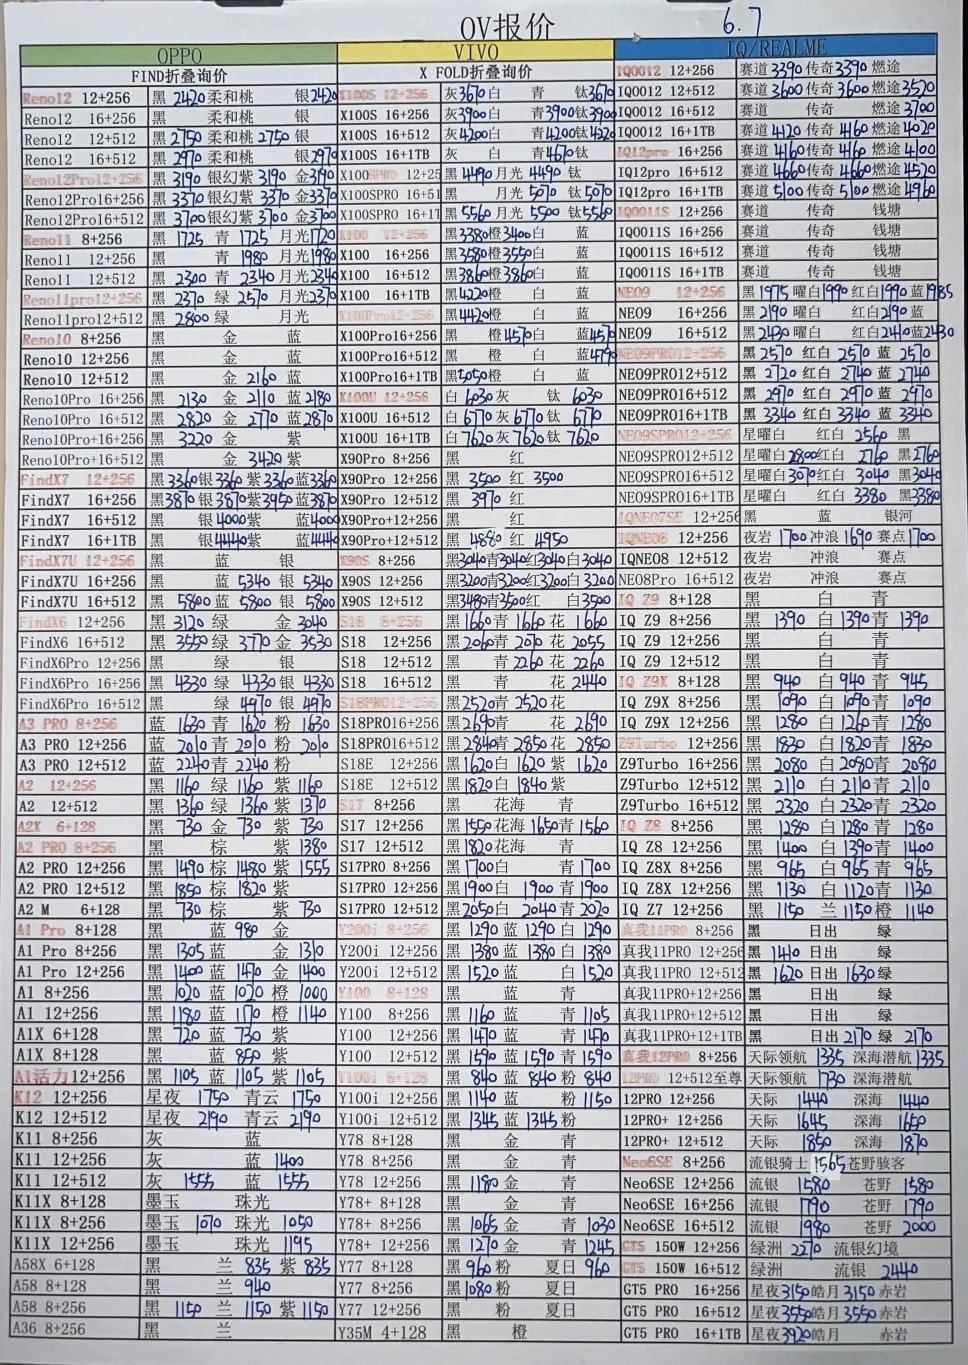 OV报价 6.7
OPPO
FIND折叠询价
Reno12 12+256 黑 2420 柔和桃 银 2420
Reno12 16+256 黑 柔和桃 银
Reno12 12+512 黑 2750 柔和桃 2750 银
Reno12 16+512 黑 2970 柔和桃 银 2970
Reno12Pro12+256 黑 3190 银幻紫 3190 金 3190
Reno12Pro16+256 黑 3370 银幻紫 3370 金 3370
Reno12Pro16+512 黑 3700 银幻紫 3700 金 3700
Reno11 8+256 黑 1725 青 1725 月光 1720
Reno11 12+256 黑 青 1980 月光 1980
Reno11 12+512 黑 2300 青 2340 月光 2340
Reno11pro12+256 黑 2370 绿 2570 月光 2370
Reno11pro12+512 黑 2800 绿 月光
Reno10 8+256 黑 金 蓝
Reno10 12+256 黑 金 蓝
Reno10 12+512 黑 金 2160 蓝
Reno10Pro 16+256 黑 2130 金 2110 蓝 2180
Reno10Pro 16+512 黑 2820 金 2770 蓝 2870
Reno10Pro+16+256 黑 3220 金 紫
Reno10Pro+16+512 黑 金 3420 紫
FindX7 12+256 黑 3360 银 3360 紫 3360 蓝 3360
FindX7 16+256 黑 3870 银 3870 紫 3950 蓝 3870
FindX7 16+512 黑 银 4000 紫 蓝 4000
FindX7 16+1TB 黑 银 4440 紫 蓝 4440
FindX7U 12+256 黑 蓝 银
FindX7U 16+256 黑 蓝 5340 银 5340
FindX7U 16+512 黑 5800 蓝 5800 银 5800
FindX6 12+256 黑 3120 绿 金 3040
FindX6 16+512 黑 3550 绿 3770 金 3530
FindX6Pro 12+256 黑 绿 银
FindX6Pro 16+256 黑 4330 绿 4330 银 4330
FindX6Pro 16+512 黑 绿 4970 银 4970
A3 PRO 8+256 蓝 1630 青 1620 粉 1630
A3 PRO 12+256 蓝 2010 青 2010 粉 2010
A3 PRO 12+512 蓝 2240 青 2240 粉
A2 12+256 黑 1160 绿 1160 紫 1160
A2 12+512 黑 1360 绿 1360 紫 1370
A2X 6+128 黑 730 金 730 紫 730
A2 PRO 8+256 黑 棕 紫 1380
A2 PRO 12+256 黑 1490 棕 1480 紫 1555
A2 PRO 12+512 黑 1850 棕 1820 紫
A2 M 6+128 黑 730 棕 紫 730
A1 Pro 8+128 黑 蓝 980 金
A1 Pro 8+256 黑 1305 蓝 金 1310
A1 Pro 12+256 黑 1400 蓝 1470 金 1400
A1 8+256 黑 1020 蓝 1020 橙 1000
A1 12+256 黑 1180 蓝 1170 橙 1140
A1X 6+128 黑 720 蓝 730 紫
A1X 8+128 黑 蓝 850 紫
A1活力12+256 黑 1105 蓝 1105 紫 1105
K12 12+256 星夜 1750 青云 1750
K12 12+512 星夜 2190 青云 2190
K11 8+256 灰 蓝
K11 12+256 灰 蓝 1400
K11 12+512 灰 1555 蓝 1555
K11X 8+128 墨玉 珠光
K11X 8+256 墨玉 1070 珠光 1050
K11X 12+256 墨玉 珠光 1195
A58X 6+128 黑 兰 835 紫 835
A58 8+128 黑 兰 940
A58 8+256 黑 1150 兰 1150 紫 1150
A36 8+256 黑 兰
VIVO
X FOLD折叠询价
X100S 12+256 灰 3670 白 青 钛 3670
X100S 16+256 灰 3900 白 青 3900 钛 3900
X100S 16+512 灰 4200 白 青 4200 钛 4220
X100S 16+1TB 灰 白 青 4670 钛
X100SPRO 12+25 黑 4490 月光 4490 钛
X100SPRO 16+51 黑 月光 5070 钛 5070
X100SPRO 16+1T 黑 5560 月光 5500 钛 5560
X100 12+256 黑 3380 橙 3400 白 蓝
X100 16+256 黑 3580 橙 3550 白 蓝
X100 16+512 黑 3860 橙 3860 白 蓝
X100 16+1TB 黑 4220 橙 白 蓝
X100Pro12+256 黑 4420 橙 白 蓝
X100Pro16+256 黑 橙 4570 白 蓝 4570
X100Pro16+512 黑 橙 白 蓝 4790
X100Pro16+1TB 黑 5050 橙 白 蓝
X100U 12+256 白 6030 灰 钛 6030
X100U 16+512 白 6770 灰 6770 钛 6770
X100U 16+1TB 白 7620 灰 7620 钛 7620
X90Pro 8+256 黑 红
X90Pro 12+256 黑 3500 红 3500
X90Pro 12+512 黑 3970 红
X90Pro+12+256 黑 红
X90Pro+12+512 黑 4880 红 4950
X90S 8+256 黑 3040 青 3040 红 3040 白 3040
X90S 12+256 黑 3200 青 3200 红 3200 白 3200
X90S 12+512 黑 3480 青 3500 红 白 3500
S18 8+256 黑 1660 青 1660 花 1660
S18 12+256 黑 2060 青 2070 花 2055
S18 12+512 黑 青 2260 花 2260
S18 16+512 黑 青 花 2440
S18PRO12+256 黑 2520 青 2520 花
S18PRO16+256 黑 2690 青 花 2690
S18PRO16+512 黑 2840 青 2850 花 2850
S18E 12+256 黑 1620 白 1620 紫 1620
S18E 12+512 黑 1820 白 1840 紫
S17 8+256 黑 花海 青
S17 12+256 黑 1550 花海 1650 青 1560
S17 12+512 黑 1820 花海 青
S17PRO 8+256 黑 1700 白 青 1700
S17PRO 12+256 黑 1900 白 1900 青 1900
S17PRO 12+512 黑 2050 白 2040 青 2020
Y200i 8+256 黑 1290 蓝 1290 白 1290
Y200i 12+256 黑 1380 蓝 1380 白 1380
Y200i 12+512 黑 1520 蓝 白 1520
Y100 8+128 黑 蓝 青
Y100 8+256 黑 1160 蓝 青 1105
Y100 12+256 黑 1470 蓝 青 1470
Y100 12+512 黑 1590 蓝 1590 青 1590
Y100i 8+128 黑 840 蓝 840 粉 840
Y100i 12+256 黑 1140 蓝 粉 1150
Y100i 12+512 黑 1345 蓝 1345 粉
Y78 8+128 黑 金 青
Y78 8+256 黑 金 青
Y78 12+256 黑 1180 金 青
Y78+ 8+128 黑 金 青
Y78+ 8+256 黑 1065 金 青 1030
Y78+ 12+256 黑 1270 金 青 1245
Y77 8+128 黑 960 粉 夏日 960
Y77 8+256 黑 1080 粉 夏日
Y77 12+256 黑 粉 夏日
Y35M 4+128 黑 橙
IQ/REALME
IQOO12 12+256 赛道 3390 传奇 3390 燃途
IQOO12 12+512 赛道 3600 传奇 3600 燃途 3520
IQOO12 16+512 赛道 传奇 燃途 3700
IQOO12 16+1TB 赛道 4120 传奇 4160 燃途 4020
IQ12pro 16+256 赛道 4160 传奇 4160 燃途 4100
IQ12pro 16+512 赛道 4660 传奇 4660 燃途 4520
IQ12pro 16+1TB 赛道 5100 传奇 5100 燃途 4960
IQOO11S 12+256 赛道 传奇 钱塘
IQOO11S 16+256 赛道 传奇 钱塘
IQOO11S 16+512 赛道 传奇 钱塘
IQOO11S 16+1TB 赛道 传奇 钱塘
NEO9 12+256 黑 1975 曜白 1990 红白 1990 蓝 1985
NEO9 16+256 黑 2190 曜白 红白 2190 蓝
NEO9 16+512 黑 2430 曜白 红白 2410 蓝 2430
NEO9PRO12+256 黑 2570 红白 2570 蓝 2570
NEO9PRO12+512 黑 2720 红白 2740 蓝 2740
NEO9PRO16+512 黑 2970 红白 2970 蓝 2970
NEO9PRO16+1TB 黑 3340 红白 3340 蓝 3340
NEO9SPRO12+256 星曜白 红白 2560 黑
NEO9SPRO12+512 星曜白 2800 红白 2760 黑 2760
NEO9SPRO16+512 星曜白 3070 红白 3040 黑 3040
NEO9SPRO16+1TB 星曜白 红白 3380 黑 3380
IQNEO7SE 12+256 黑 蓝 银河
IQNEO8 12+256 夜岩 1700 冲浪 1690 赛点 1700
IQNEO8 12+512 夜岩 冲浪 赛点
NEO8Pro 16+512 夜岩 冲浪 赛点
IQ Z9 8+128 黑 白 青
IQ Z9 8+256 黑 1390 白 1390 青 1390
IQ Z9 12+256 黑 白 青
IQ Z9 12+512 黑 白 青
IQ Z9X 8+128 黑 940 白 940 青 945
IQ Z9X 8+256 黑 1090 白 1090 青 1090
IQ Z9X 12+256 黑 1280 白 1260 青 1280
Z9Turbo 12+256 黑 1830 白 1820 青 1830
Z9Turbo 16+256 黑 2080 白 2080 青 2080
Z9Turbo 12+512 黑 2110 白 2110 青 2110
Z9Turbo 16+512 黑 2320 白 2320 青 2320
IQ Z8 8+256 黑 1280 白 1280 青 1280
IQ Z8 12+256 黑 1400 白 1390 青 1400
IQ Z8X 8+256 黑 965 白 965 青 965
IQ Z8X 12+256 黑 1130 白 1120 青 1130
IQ Z7 12+256 黑 1150 兰 1150 橙 1140
真我11PRO 8+256 黑 日出 绿
真我11PRO 12+256 黑 1410 日出 绿
真我11PRO 12+512 黑 1620 日出 1630 绿
真我11PRO+12+256 黑 日出 绿
真我11PRO+12+512 黑 日出 绿
真我11PRO+12+1TB 黑 日出 2170 绿 2170
真我12PRO 8+256 天际领航 1335 深海潜航 1335
12PRO 12+512至尊 天际领航 1730 深海潜航
12PRO 12+256 天际 1440 深海 1440
12PRO+ 12+256 天际 1645 深海 1650
12PRO+ 12+512 天际 1850 深海 1870
Neo6SE 8+256 流银骑士 1565 苍野骇客
Neo6SE 12+256 流银 1580 苍野 1580
Neo6SE 16+256 流银 1790 苍野 1790
Neo6SE 16+512 流银 1980 苍野 2000
GT5 150W 12+256 绿洲 2270 流银幻境
GT5 150W 16+512 绿洲 流银 2440
GT5 PRO 16+256 星夜 3150 皓月 3150 赤岩
GT5 PRO 16+512 星夜 3550 皓月 3550 赤岩
GT5 PRO 16+1TB 星夜 3920 皓月 赤岩